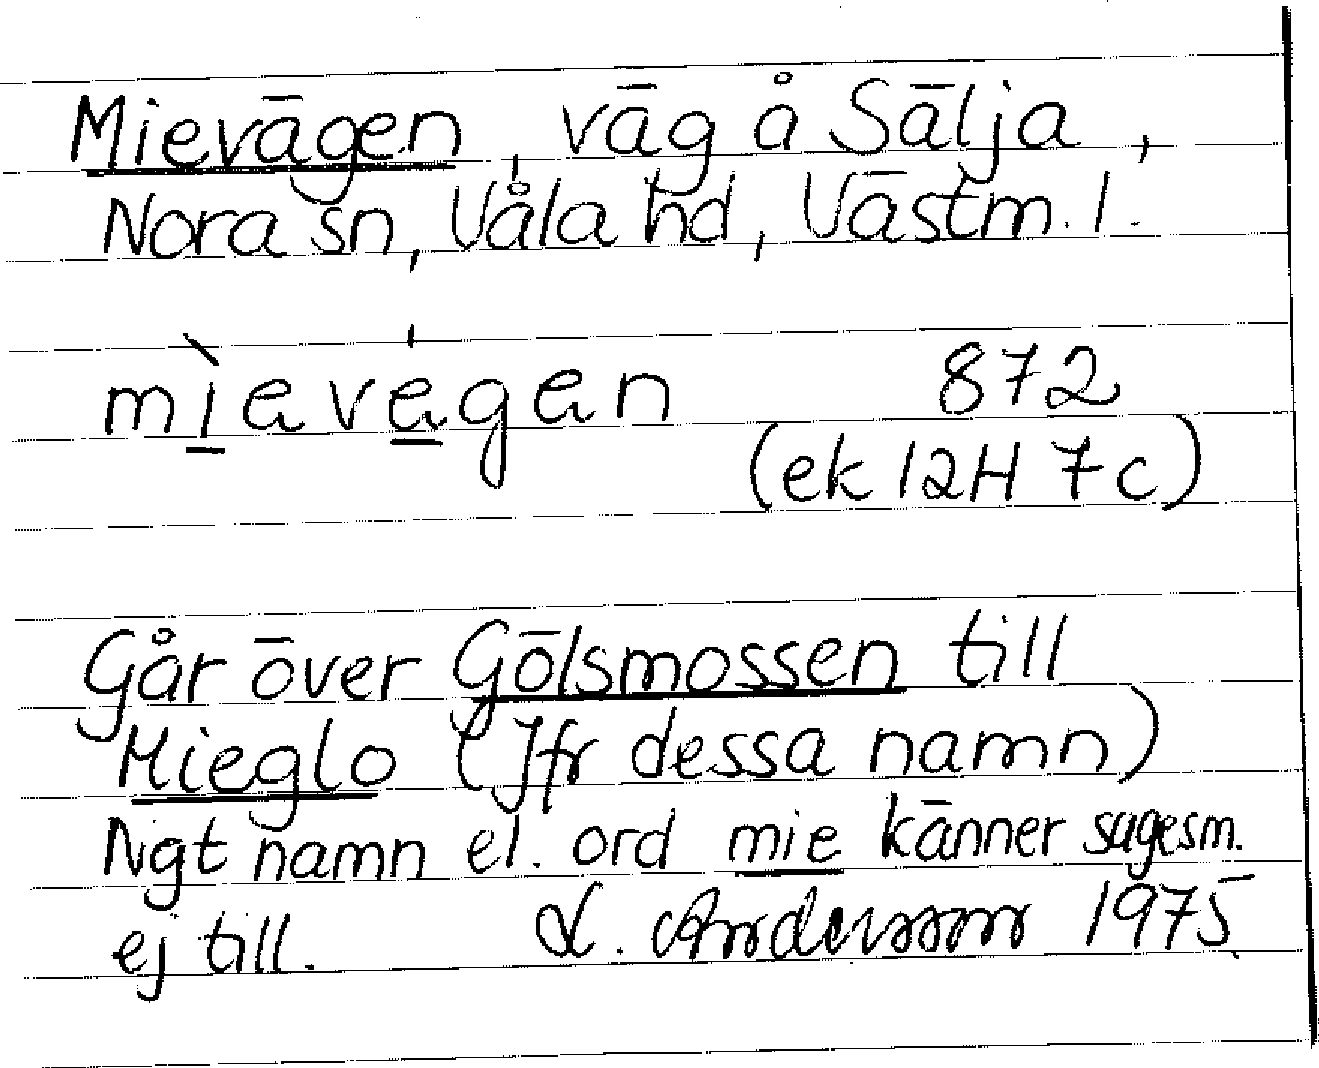 Mievägen, väg å Sälja,
Nora sn, Våla hd, Västm. l.
mìevégen 872
(ek 12H 7c)
Går över Gölsmossen till
Mieglo (Jfr dessa namn)
Ngt namn el. ord mie känner sagesm.
ej till. L. Andersson 1975